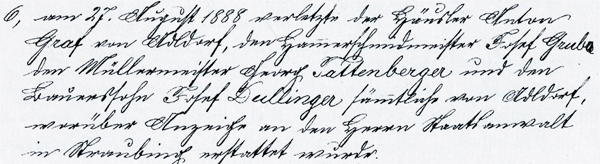 6, am 27. August 1888 verletzte der Häusler Anton
Graf von Adldorf, den Hammerschmidmeister Josef Gruba
den Müllermeister Georg Tattenberger und den
Bauerssohn Josef Dullinger sämmtliche von Adldorf,
worüber Anzeige an den Herrn Staatsanwalt
in Straubing erstattet wurde.